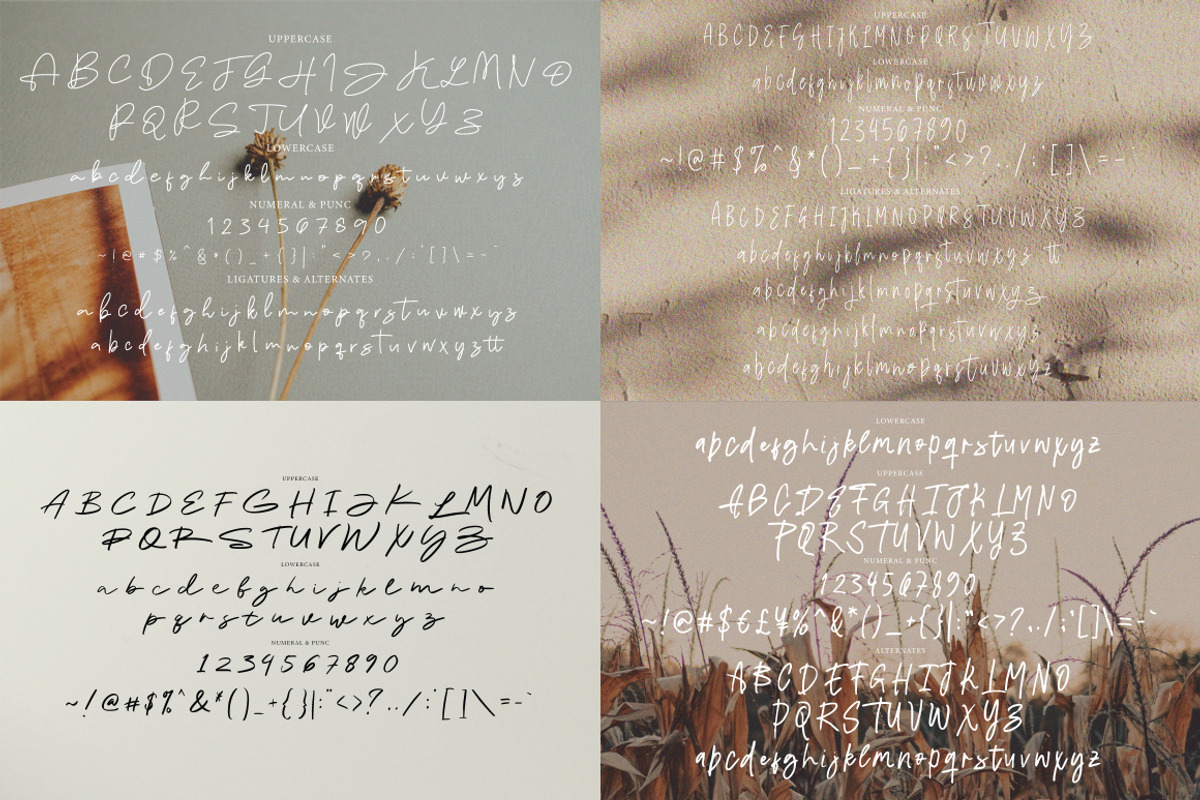 UPPERCASE
A B C D E F G H I J K L M N O
P Q R S T U V W X Y Z
LOWERCASE
a b c d e f g h i j k l m n o p q r s t u v w x y z
NUMERAL & PUNC
1 2 3 4 5 6 7 8 9 0
~ ! @ # $ % ^ & * ( ) _ + { } | : " < > ? , . / ; ' [ ] \ = - `
LIGATURES & ALTERNATES
a b c d e f g h i j k l m n o p q r s t u v w x y z
a b c d e f g h i j k l m n o p q r s t u v w x y z tt
UPPERCASE
ABCDEFGHIJKLMNOPQRSTUVWXYZ
LOWERCASE
abcdefghijklmnopqrstuvwxyz
NUMERAL & PUNC
1234567890
~!@#$%^&*()_+{}|:"<>?,./;'[]\=-
LIGATURES & ALTERNATES
ABCDEFGHIJKLMNOPQRSTUVWXYZ
abcdefghijklmnopqrstuvwxyz tt
abcdefghijklmnopqrstuvwxyz
abcdefghijklmnopqrstuvwxyz
abcdefghijklmnopqrstuvwxyz
UPPERCASE
A B C D E F G H I J K L M N O
P Q R S T U V W X Y Z
LOWERCASE
a b c d e f g h i j k l m n o
p q r s t u v w x y z
NUMERAL & PUNC
1 2 3 4 5 6 7 8 9 0
~ ! @ # $ % ^ & * ( ) _ + { } | : " < > ? , . / ; ' [ ] \ = - `
LOWERCASE
abcdefghijklmnopqrstuvwxyz
UPPERCASE
ABCDEFGHIJKLMNO
PQRSTUVWXYZ
NUMERAL & PUNC
1234567890
~!@#$€£¥%^&*()_+{}|:"<>?,./;'[]\=-`
ALTERNATES
ABCDEFGHIJKLMNO
PQRSTUVWXYZ
abcdefghijklmnopqrstuvwxyz